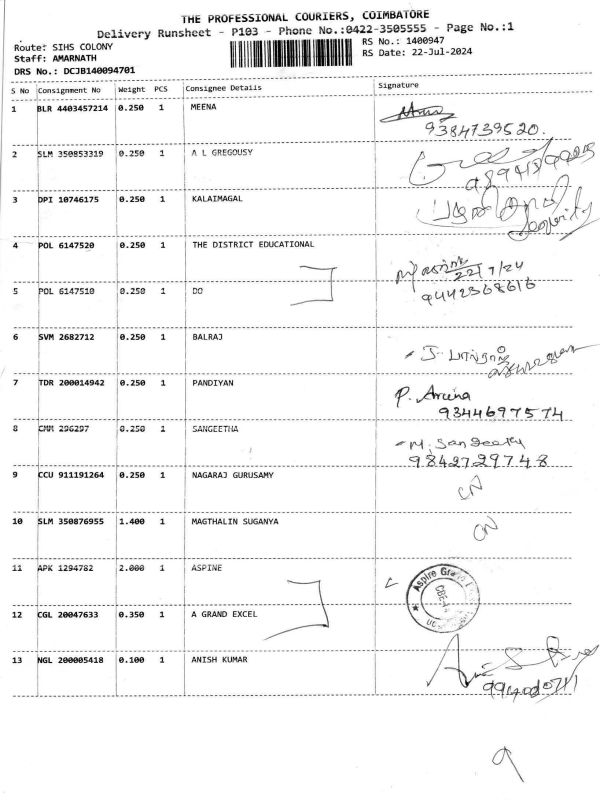 THE PROFESSIONAL COURIERS, COIMBATORE
Delivery Runsheet - P103 - Phone No.:0422-3505555 - Page No.:1
Route: SIHS COLONY
Staff: AMARNATH
DRS No.: DCJB140094701
RS No.: 1400947
RS Date: 22-Jul-2024
S No Consignment No Weight PCS Consignee Details Signature
1 BLR 4403457214 0.250 1 MEENA
9384739520.
2 SLM 350853319 0.250 1 A L GREGOUSY
3 DPI 10746175 0.250 1 KALAIMAGAL
Security
4 POL 6147520 0.250 1 THE DISTRICT EDUCATIONAL
22/7/24
9442368616
5 POL 6147510 0.250 1 DO
6 SVM 2682712 0.250 1 BALRAJ
7 TDR 200014942 0.250 1 PANDIYAN
P. Aruna
9344697574
8 CMM 296297 0.250 1 SANGEETHA
M. Sangeetha
9842729748
9 CCU 911191264 0.250 1 NAGARAJ GURUSAMY
CN
10 SLM 350876955 1.400 1 MAGTHALIN SUGANYA
CN
11 APK 1294782 2.000 1 ASPINE
Aspire Gra
12 CGL 20047633 0.350 1 A GRAND EXCEL
13 NGL 200005418 0.100 1 ANISH KUMAR